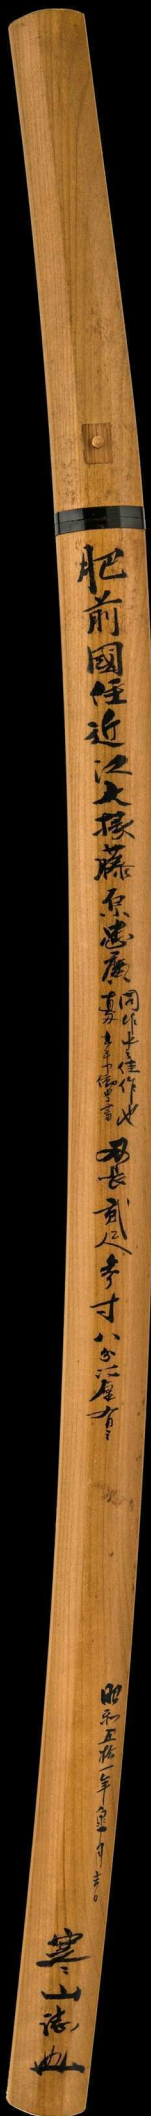 肥前國住近江大掾藤原忠廣
同作中之佳作也
刃長貳尺参寸八分強有之
昭和五拾一年
月吉日
寒山誌